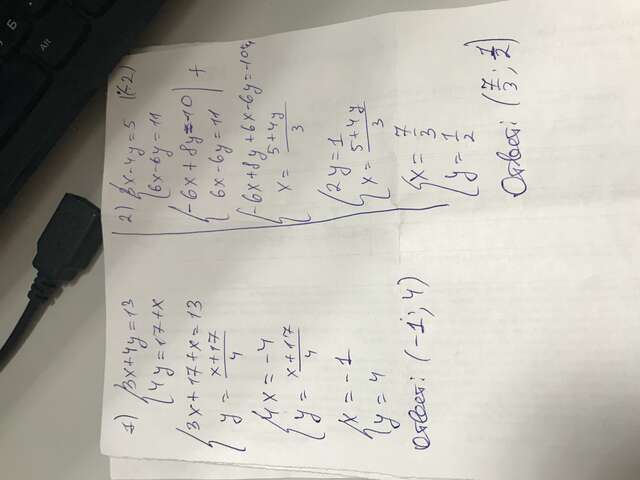 1) {3x+4y=13
{4y=17+x
{3x+17+x=13
{y= x+17/4
{4x=-4
{y= x+17/4
{x=-1
{y=4
Ответ: (-1; 4)
2) {3x-4y=5 |(-2)
{6x-6y=11
{-6x+8y=-10 | +
{6x-6y=11
{-6x+8y+6x-6y=-10+
{x= 5+4y/3
{2y=1
{x= 5+4y/3
{x= 7/3
{y= 1/2
Ответ: (7/3; 1/2)
Б
Alt